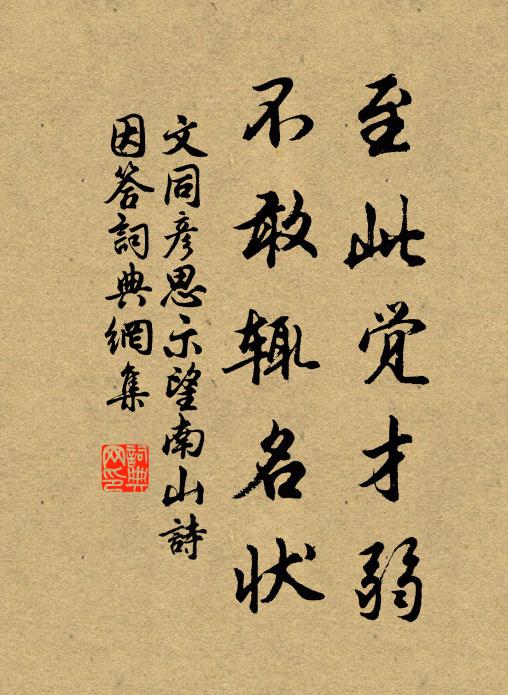 至此觉才弱
不敢辄名状
文同彦思示望南山詩
因答詞典網集
詞典
网印